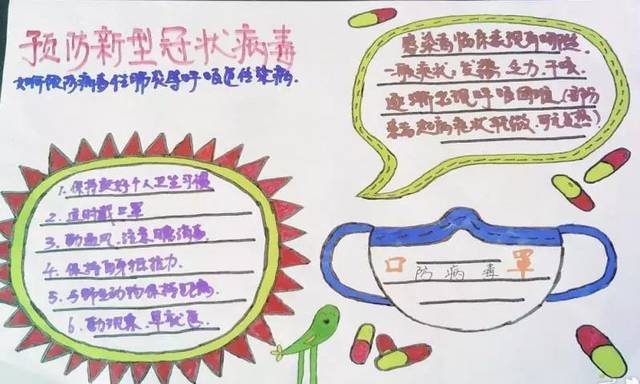 预防新型冠状病毒
如何预防病毒性肺炎等呼吸道传染病.
感染者临床表现有哪些
一般症状:发热、乏力、干咳、
逐渐出现呼吸困难(部分
患者起病症状轻微,可无发热)
1. 保持良好个人卫生习惯
2. 适时戴口罩
3. 勤通风,注意消毒
4. 保持自身抵抗力.
5. 与野生动物保持距离.
6. 勤观察,早就医
口防病毒罩